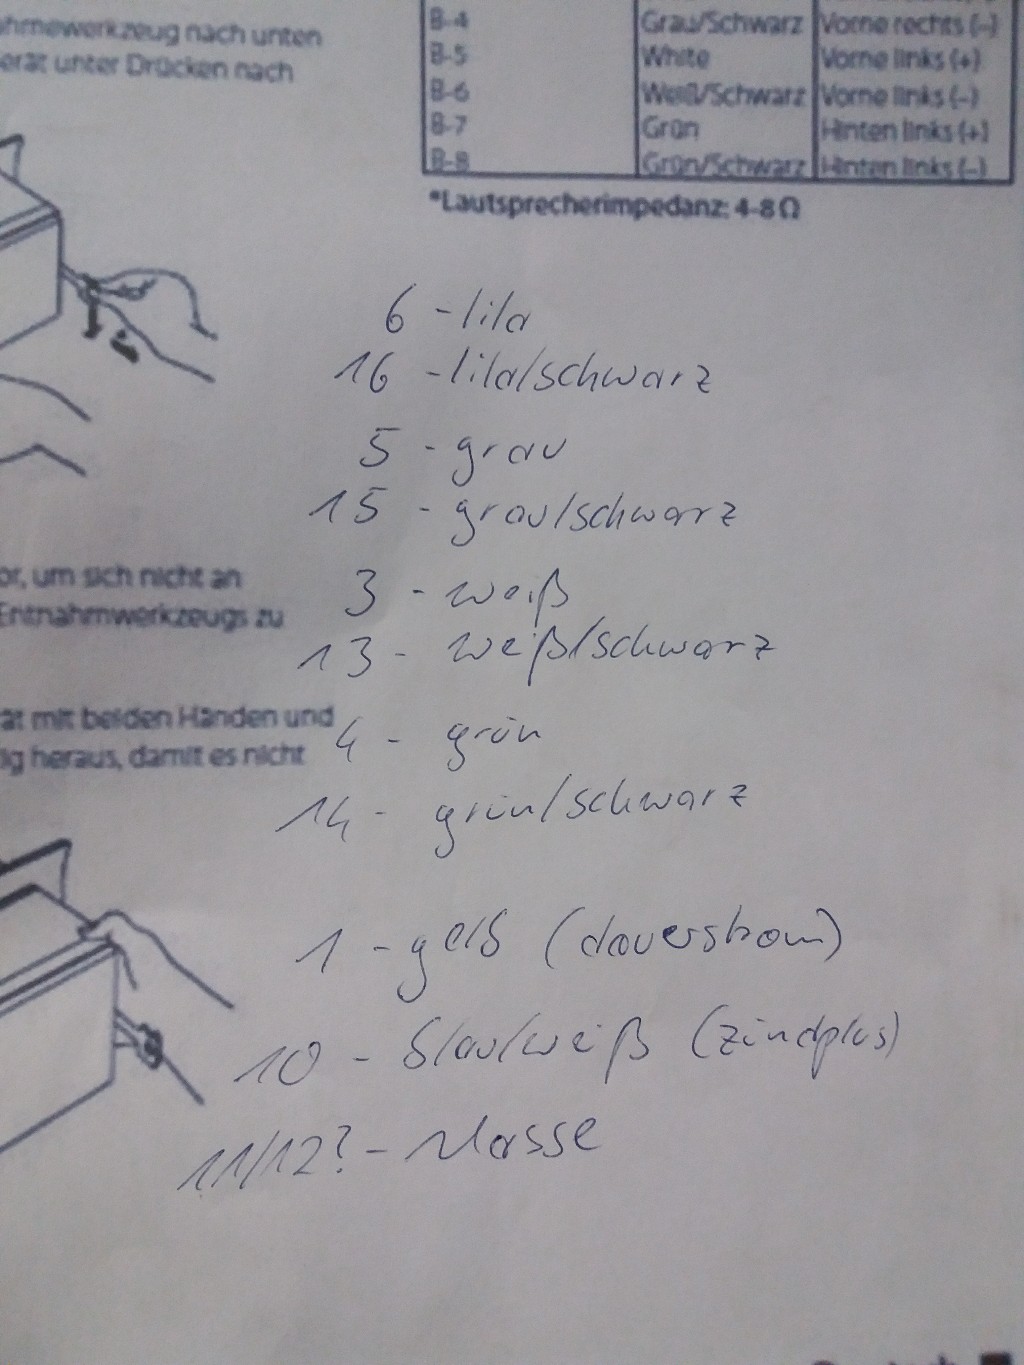 nach unten
B-4 Grau/Schwarz Vorne rechts (–)
erät unter Drücken nach
B-5 White Vorne links (+)
B-6 Weiß/Schwarz Vorne links (–)
B-7 Grün Hinten links (+)
B-8 Grün/Schwarz Hinten links (–)
*Lautsprecherimpedanz: 4-8 Ω
6 - lila
16 - lila/schwarz
5 - grau
15 - grau/schwarz
or, um sich nicht an
Entnahmwerkzeugs zu
3 - weiß
13 - weiß/schwarz
ät mit beiden Händen und
ig heraus, damit es nicht
4 - grün
14 - grün/schwarz
1 - gelb (dauerstrom)
10 - blau/weiß (zündplus)
11/12? - Masse